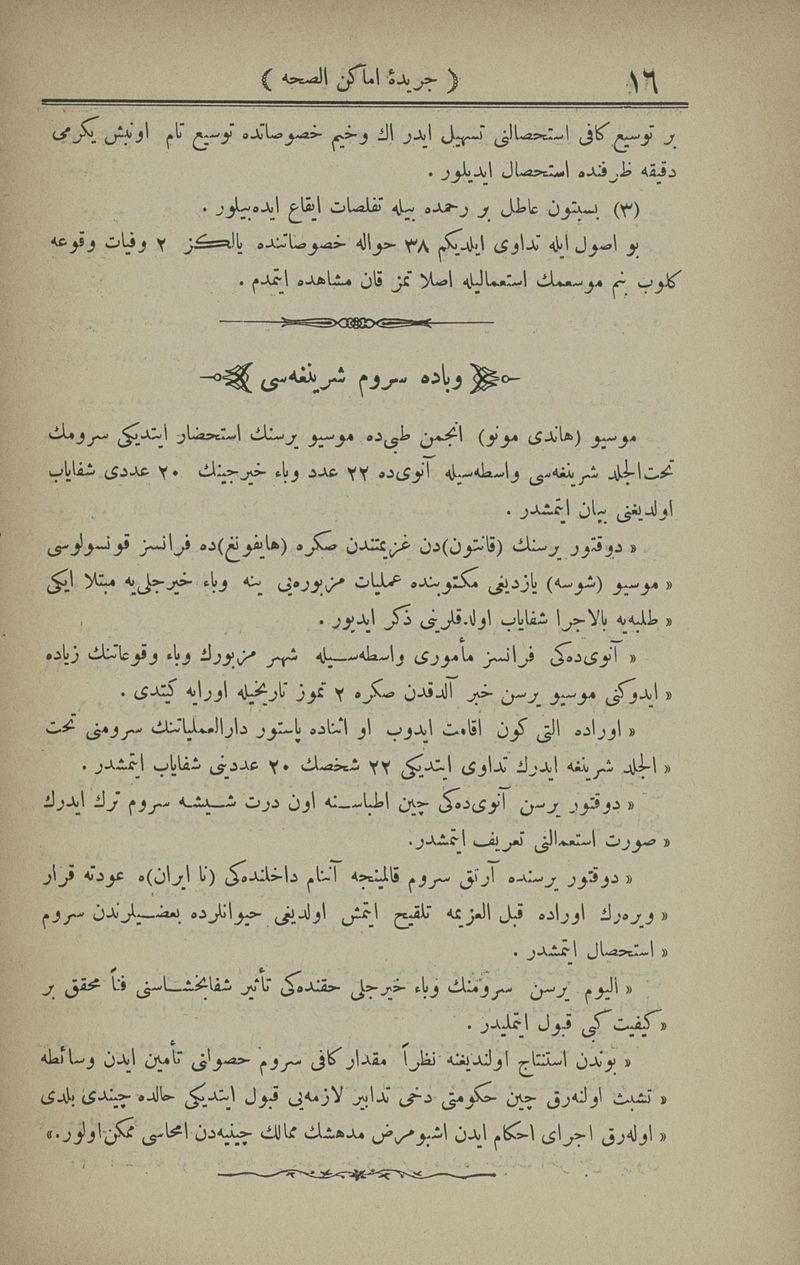 ١٦
( جريدهٔ اماكن الصحه )
بر توسيع كافى استحصالنى تسهيل ايدر اك وخيم خصوصاتده توسيع تام اونبش يكرمى
دقيقه ظرفنده استحصال ايديلور .
(٣) بسبتون عاطل بر رحمده بيله تفلصات ايقاع ايده‌بيلور .
بو اصول ايله تداوى ايلديكم ٣٨ حواله خصوصاتنده يالكز ٢ وفيات وقوعه
كلوب بنم موسعمك استعماليله اصلا تمز قان مشاهده ايتمدم .
وباده سروم شرينغه‌سى
موسيو (هاندى مونو) انجمن طبى‌ده موسيو يرسنك استحضار ايتديكى سرومك
تحت‌الجلد شرينغه‌سى واسطه‌سيله آنوى‌ده ٢٢ عدد وباء خيرجينك ٢٠ عددى شفاياب
اولديغنى بيان ايتمشدر .
« دوقتور يرسنك (قانتون)دن عزيمتندن صكره (هايفونغ)ده فرانسز قونسولوسى
« موسيو (شوسه) يازديغى مكتوبنده عمليات مزبوره‌يى ينه وباء خيرجلى‌يه مبتلا ايكى
« طلبه‌يه بالاجرا شفاياب اولدقلرينى ذكر ايديور .
« آنوى‌ده‌كى فرانسز مأمورى واسطه‌سيله شهر مزبورك وباء وقوعاتنك زياده
« ايدوكنى موسيو يرسن خبر آلدقدن صكره ٢ تموز تاريخيله اورايه كيتدى .
« اوراده التى كون اقامت ايدوب او اثناده پاستور دارالعملياتنك سرومنى تحت
« الجلد شرينغه ايدرك تداوى ايتديكى ٢٢ شخصك ٢٠ عددينى شفاياب ايتمشدر .
« دوقتور يرسن آنوى‌ده‌كى چين اطباسنه اون درت شيشه سروم ترك ايدرك
« صورت استعمالنى تعريف ايتمشدر.
« دوقتور يرسنده آرتق سروم قالمينجه آننام داخلنده‌كى (نا ايران)ه عودته قرار
« ويره‌رك اوراده قبل العزيمه تلقيح ايتمش اولديغى حيوانلرده بعضيلرندن سروم
« استحصال ايتمشدر .
« اليوم يرسن سرومنك وباء خيرجلى حقنده‌كى تأثير شفابخشاسنى فناً محقق بر
« كيفيت كبى قبول ايتمليدر .
« بوندن استنتاج اولنديغنه نظراً مقدار كافى سروم حصولنى تأمين ايدن وسائطه
« تشبث اولنه‌رق چين حكومتى دخى تدابير لازمه‌يى قبول ايتديكى حالده چيندى بلدى
« اوله‌رق اجراى احكام ايدن اشبومرض مدهشك ممالك چينيه‌دن امحاسى ممكن‌اولور.»